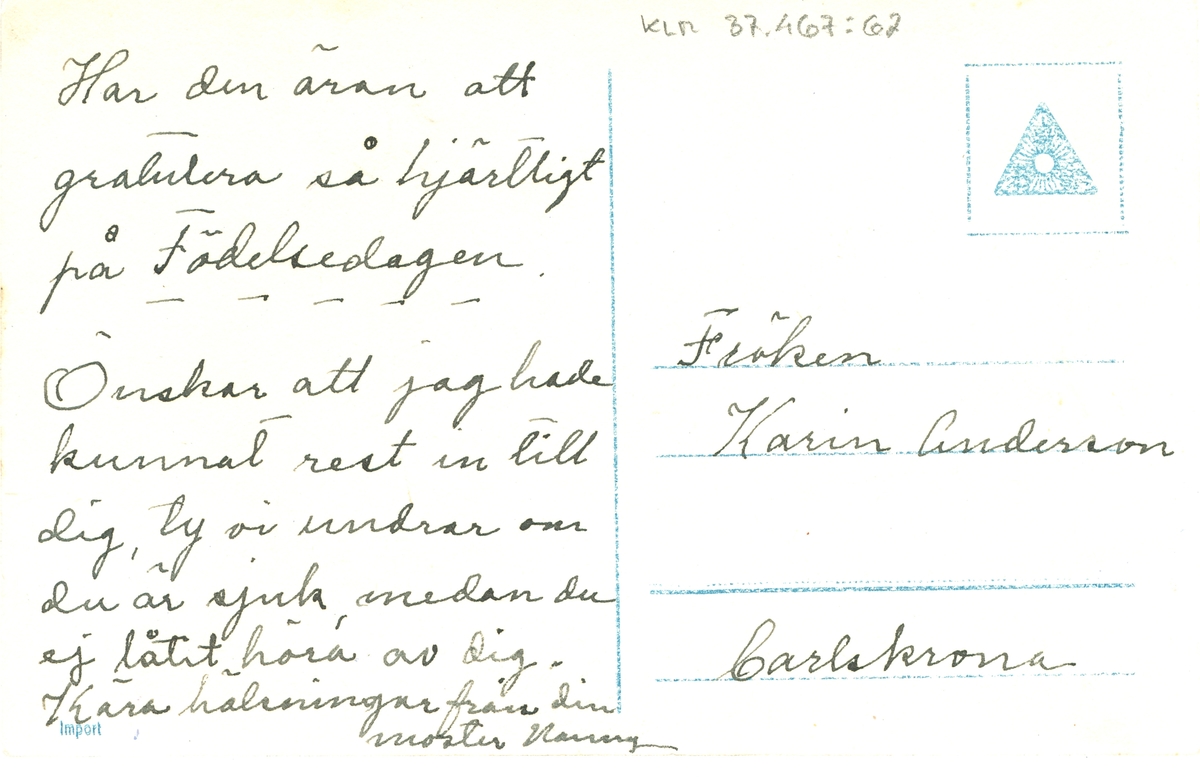 KLM 37.467:62
Har den äran att
gratulera så hjärtligt
på Födelsedagen.
Önskar att jag hade
kunnat rest in till
dig, ty vi undrar om
du är sjuk, medan du
ej låtit höra av dig.
Kära hälsningar från din
moster Nanny
Import
Fröken
Karin Anderson
Carlskrona